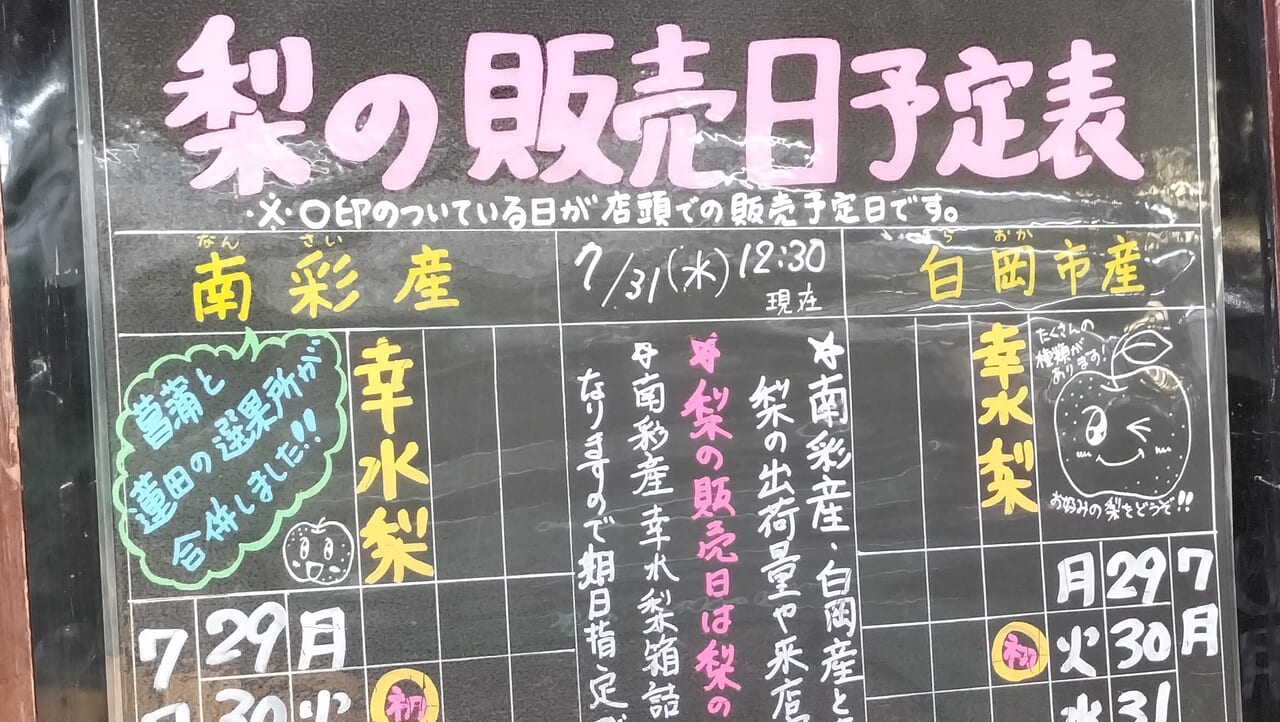 梨の販売日予定表
※○印のついている日が店頭での販売予定日です。
なん さい
南彩産
7/31(水) 12:30
現在
らおか
白岡市産
菖蒲と
蓮田の選果所が
合併しました!!
幸水梨
☆南彩産・白岡産と
梨の出荷量や来店
☆梨の販売日は梨の
☆南彩産幸水梨箱詰
なりますので期日指定
幸水梨
たくさんの
種類が
あります!
お好みの梨をどうぞ!!
7 29 月
30 火 初
7月 29 月
30 火 初
31 水